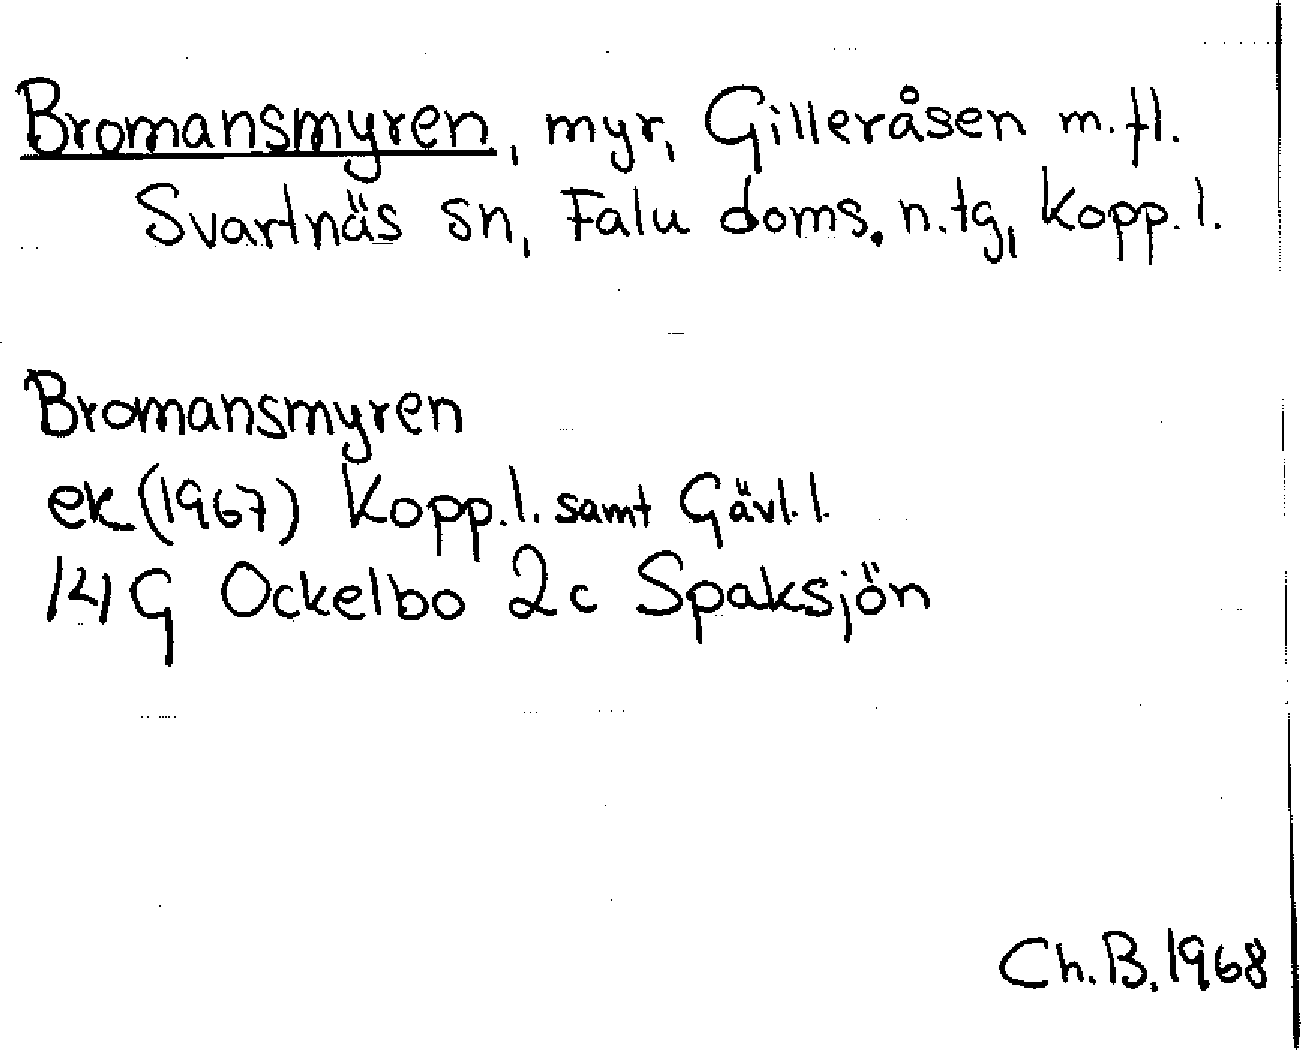 Bromansmyren, myr, Gilleråsen m.fl.
Svartnäs sn, Falu doms. n.tg, Kopp.l.
Bromansmyren
ek (1967) Kopp.l. samt Gävl.l.
14 G Ockelbo 2c Spaksjön
Ch.B. 1968